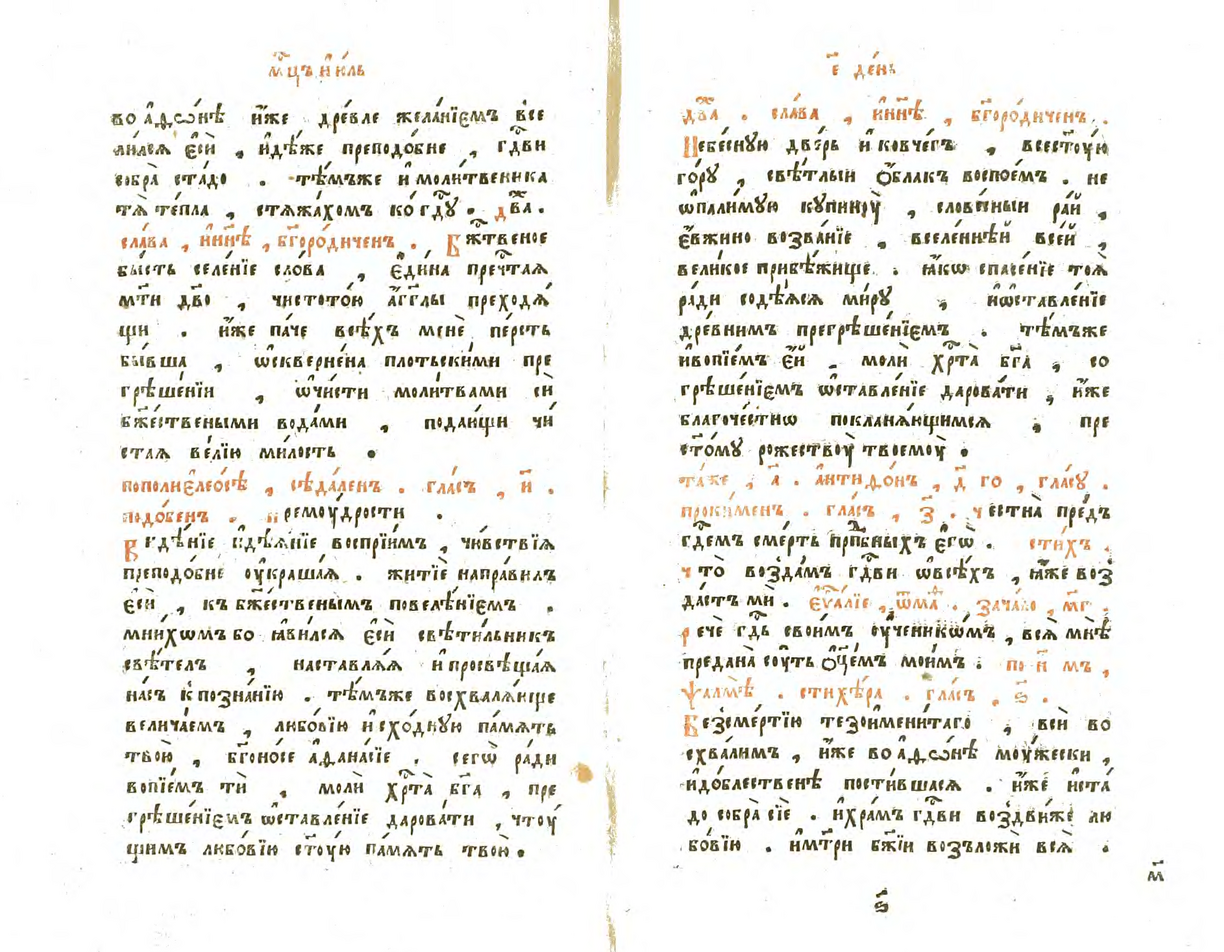 мⷭ҇цъ и҆ю́ль
во а҆ѳѡ́нѣ и҆́же дре́вле жела́нїємъ все
ли́лсѧ є҆сѝ , и҆дѣ́же преподо́бне , гдⷭ҇ви
собра̀ ста́до . тѣ́мъже и҆ моли́твеника
тѧ̀ те́пла , стѧжа́хомъ ко гдⷭ҇у . два́ .
сла́ва , и҆ ны́нѣ , бг҃оро́диченъ . Бж҃твеное
бы́сть селе́нїе сло́ва , є҆ди́на пречⷭ҇таѧ
мт҃и дв҃о , чистото́ю а҆́гг҃лы преходѧ́
щи . и҆́же па́че всѣ́хъ менѐ пе́рсть
бы́вша , ѡ҆скверне́на пло́тьски́ми пре
грѣше́нїи , ѡ҆чи́сти моли́твами сѝ
бж҃ествеными вода́ми , подаю́щи чи́
стаѧ ве́лїю ми́лость .
по полиє҆лео́сѣ , сѣда́ленъ . гла́съ , и҃ .
подо́бенъ . премоу́дрости .
Видѣ́нїе и҆ дѣѧ́нїе воспрїи́мъ , чю́вствїѧ
преподо́бне оу҆краша́ѧ . житїѐ напра́вилъ
є҆сѝ , къ бж҃ественымъ повелѣ́нїємъ .
мни́хѡмъ бо ꙗ҆ви́лсѧ є҆сѝ свѣти́льникъ
свѣ́телъ , наставлѧ́ѧ и҆ просвѣща́ѧ
на́съ к позна́нїю . тѣ́мъже восхвалѧ́юще
велича́емъ , любо́вїю и҆схо́дную па́мѧть
твою̀ , бг҃оно́се а҆ѳана́сїе . сегѡ̀ ра́ди
вопїе́мъ тѝ , молѝ хрⷭ҇та̀ бг҃а , пре
грѣше́нїємъ ѡ҆ставле́нїе дарова́ти , чтоу́
щимъ любо́вїю ст҃оую па́мѧть твою̀ .
є҃ де́нь
два́ . сла́ва , и҆ ны́нѣ , бг҃оро́диченъ .
Небесную две́рь и҆ ковче́гъ , всест҃оую
го́ру , свѣ́тлыи ѻ҆́блакъ воспое́мъ . не
ѡ҆пали́мую купиноу̀ , слове́сныи ра́й ,
є҆́ввжино возва́нїе , вселе́ннѣй все́й ,
вели́кое прибѣ́жище . ꙗ҆́кѡ спасе́нїе тоѧ̀
ра́ди содѣ́ѧсѧ ми́ру , и҆ ѡ҆ставле́нїе
дре́внимъ прегрѣше́нїємъ . тѣ́мъже
и҆ вопїе́мъ є҆́й , молѝ хрⷭ҇та̀ бг҃а , со
грѣше́нїємъ ѡ҆ставле́нїе дарова́ти , и҆́же
благоче́стнѡ покланѧ́ющимсѧ , пре
ст҃о́му рожествоу̀ твоемоу̀ .
та́же , а҃ . а҆нтифо́нъ , д҃ го , гла́су .
проки́менъ . гла́съ , з҃ . честна̀ пре́дъ
гдⷭ҇емъ сме́рть прпⷣбныхъ є҆гѡ̀ . сти́хъ .
что̀ возда́мъ гдⷭ҇ви ѡ҆ всѣ́хъ , ꙗ҆́же воз̾
да́стъ мѝ . є҆ѵⷢ҇а́лїе , ѿ ма́ⷴ , зача́ло , мг҃ .
речѐ гдⷭ҇ь свои́мъ оу҆ченикѡ́мъ , всѧ̀ мнѣ̀
предана̀ соу́ть ѻ҆ц҃е́мъ мои́мъ . по н҃ мъ ,
ѱалмѣ̀ . стихѣ́ра . гла́съ , ѕ҃ .
Без̾сме́ртїю тезоимени́таго , всѝ во
схва́лимъ , и҆́же во а҆ѳѡ́нѣ моу́жески ,
и҆ до́блественѣ пости́вшасѧ . и҆́же и҆ ста́
до собра̀ сїѐ . и҆ хра́мъ гдⷭ҇ви воздви́же лю
бо́вїю . и҆ мт҃ри бж҃їи возъложѝ всѧ̀ .
м҃
ѕ҃